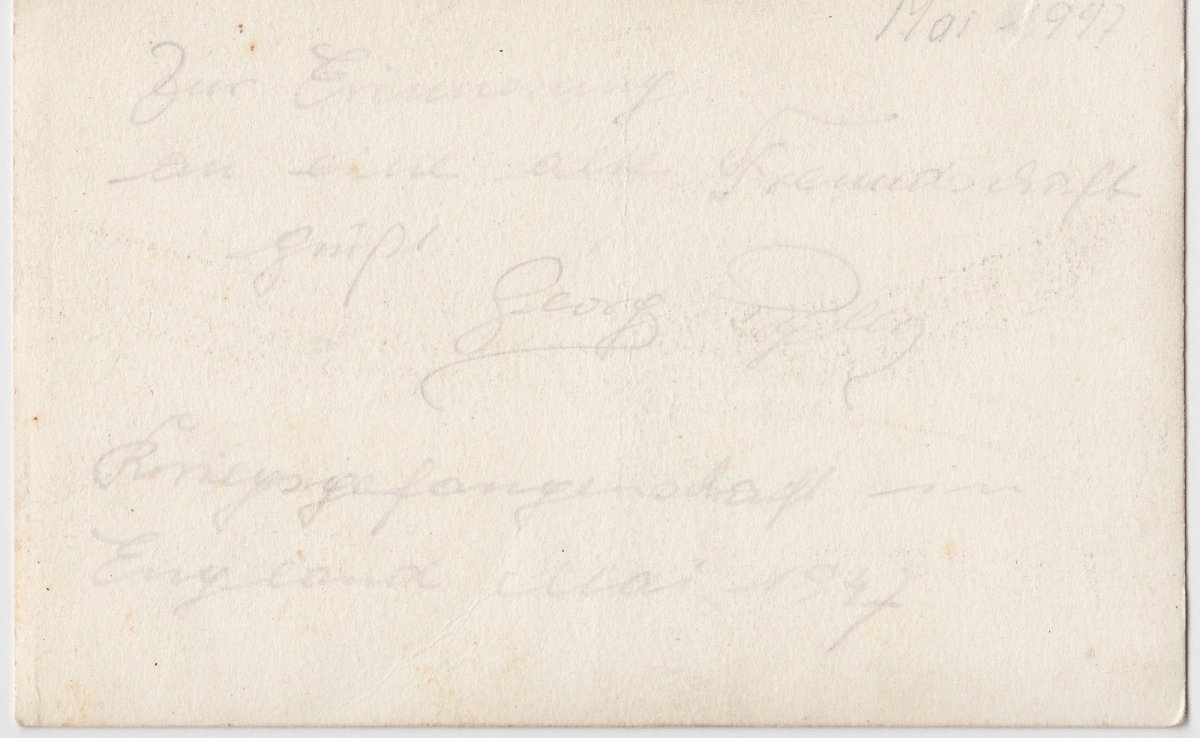 Mai 1947
Zur Erinnerung
an eine alte Freundschaft
grüßt
Georg
Kriegsgefangenschaft in
England Mai 1947